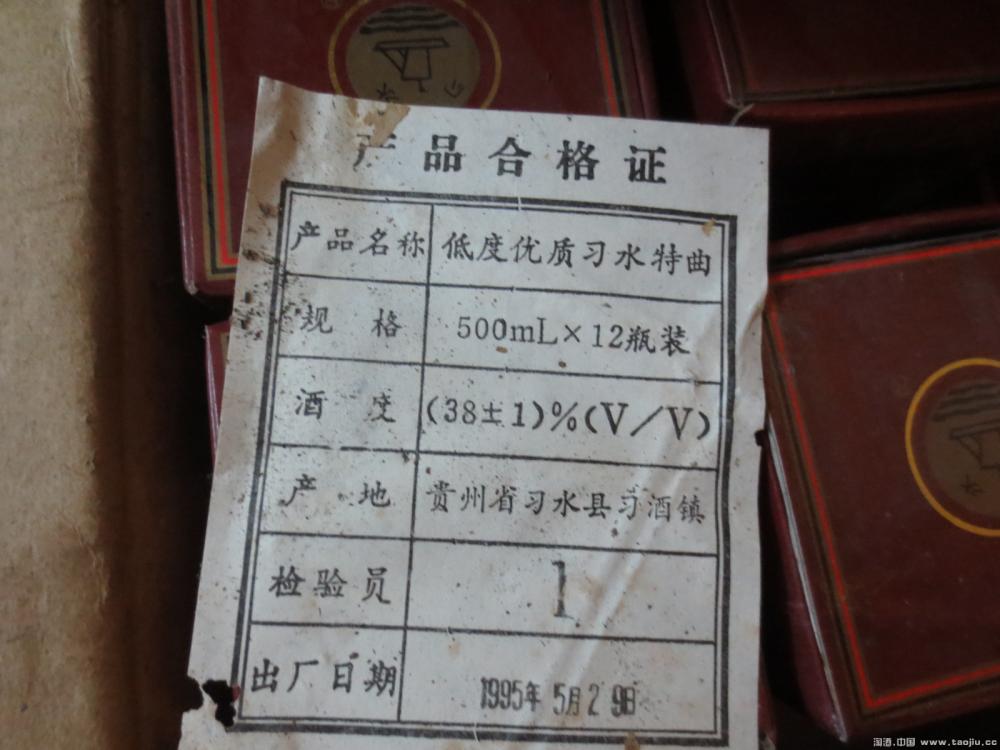 产品合格证
产品名称 低度优质习水特曲
规格 500mL×12瓶装
酒度 (38±1)%(V/V)
产地 贵州省习水县习酒镇
检验员 1
出厂日期 1995年5月29日
淘酒.中国 www.taojiu.cc